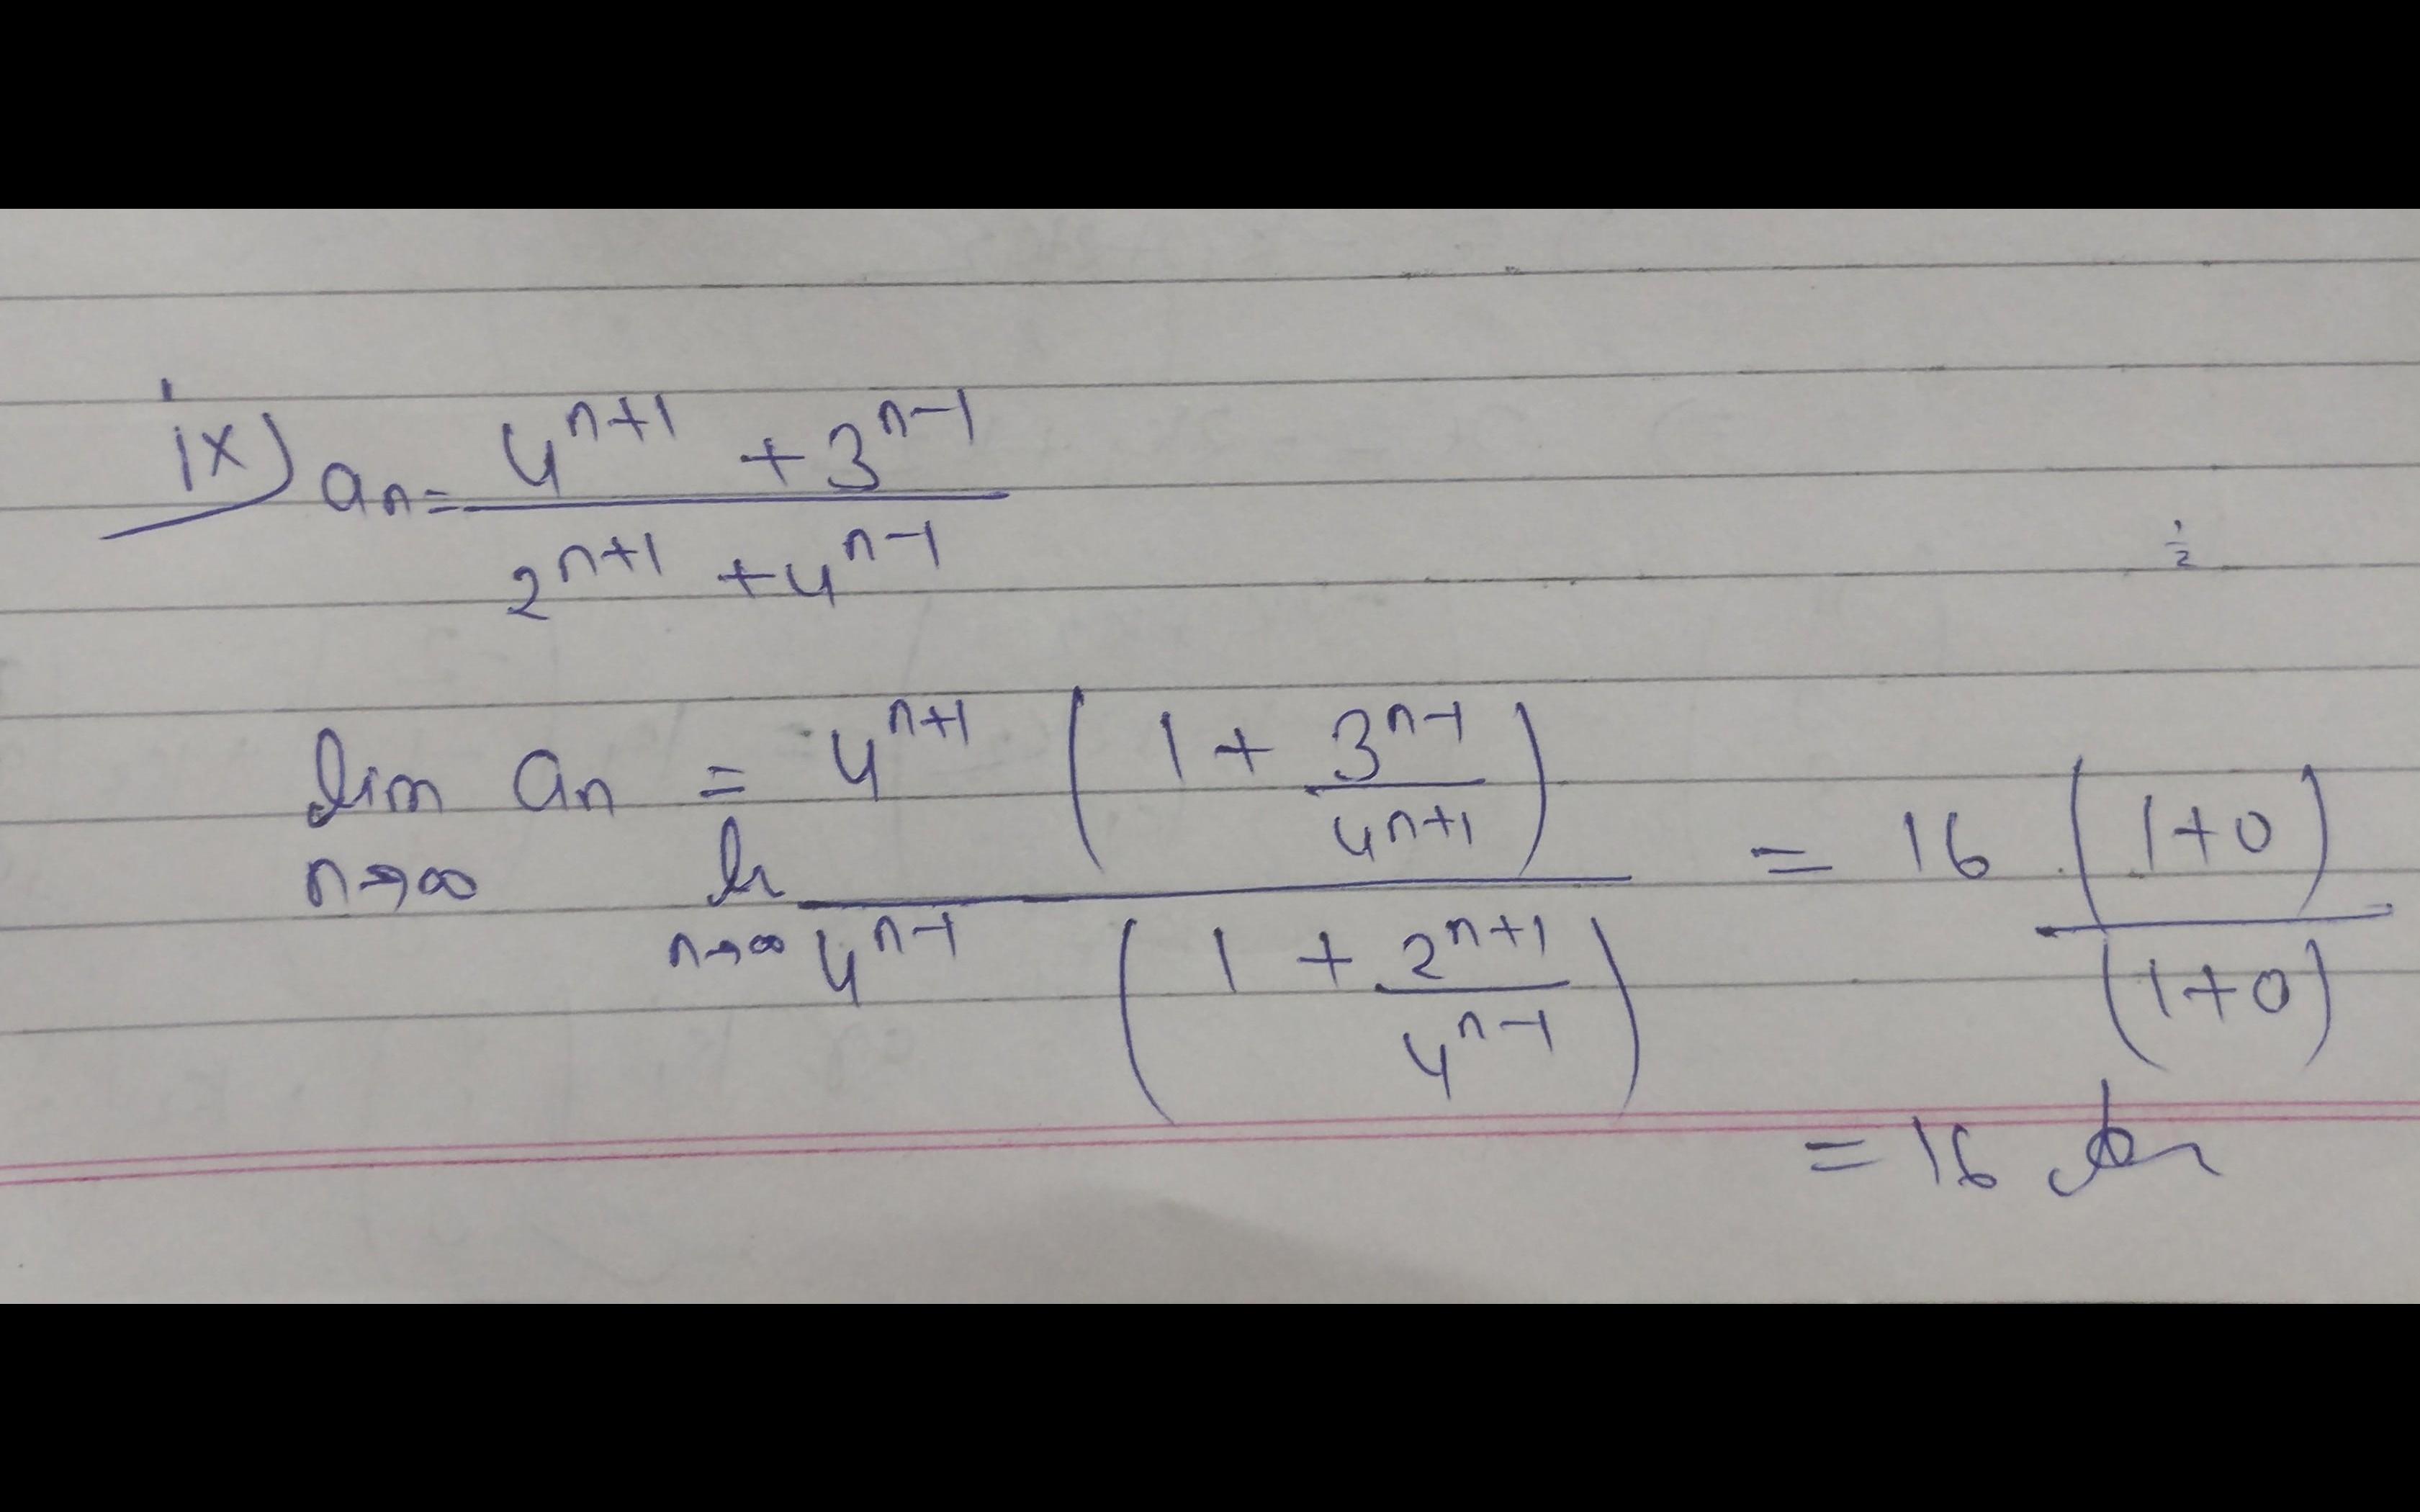 ix) aₙ = (4ⁿ⁺¹ + 3ⁿ⁻¹) / (2ⁿ⁺¹ + 4ⁿ⁻¹)
1/2
lim n→∞ aₙ = n→∞ 4ⁿ⁺¹ (1 + 3ⁿ⁻¹/4ⁿ⁺¹) / 4ⁿ⁻¹ (1 + 2ⁿ⁺¹/4ⁿ⁻¹) = 16 (1+0)/(1+0)
= 16